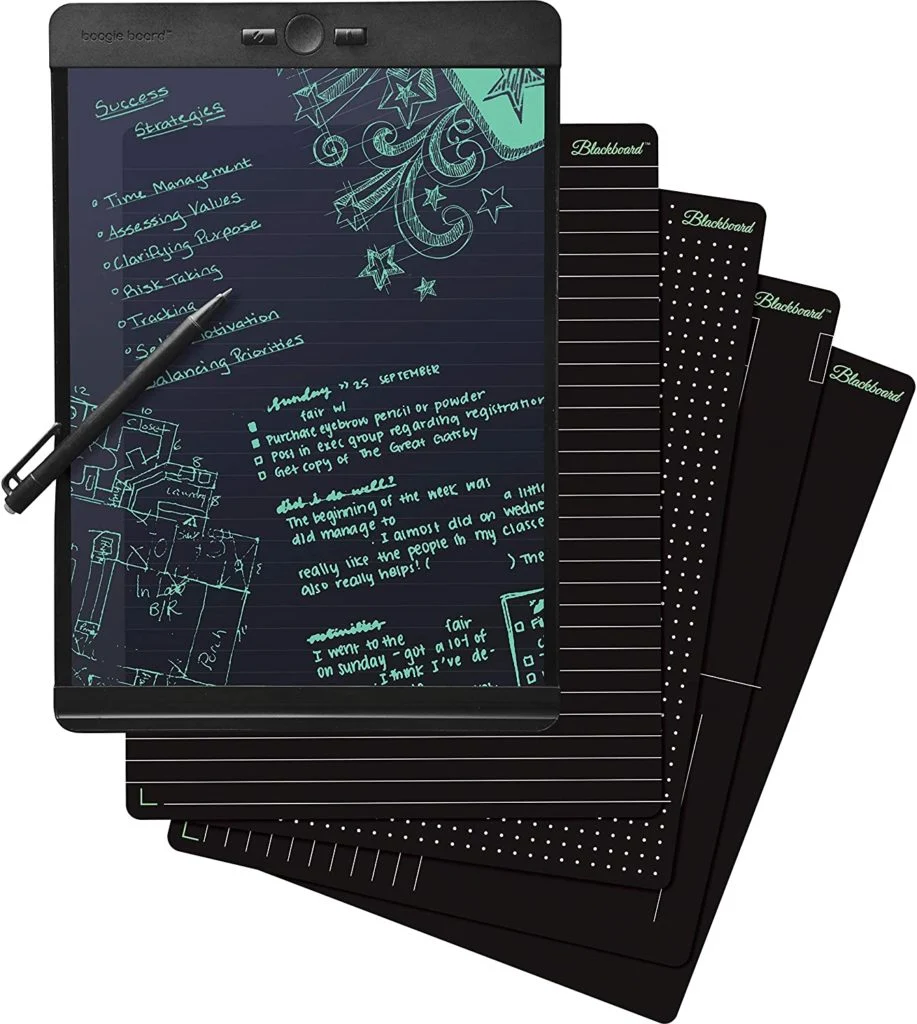 boogie board™
Success
Strategies
Time Management
Assessing Values
Clarifying Purpose
Risk Taking
Tracking
Motivation
Balancing Priorities
Sunday >> 25 SEPTEMBER
fair w/
Purchase eyebrow pencil or powder
Post in exec group regarding registration
Get copy of The Great Gatsby
did i do well?
The beginning of the week was a little
did manage to . I almost did on wedne
really like the people in my classe
also really helps! ( ) The
activities
I went to the fair
on sunday - got a lot of
I think I've de-
12
10
Closet
6
8
Laundry
B/R
Porch
Blackboard™
Blackboard
Blackboard™
Blackboard